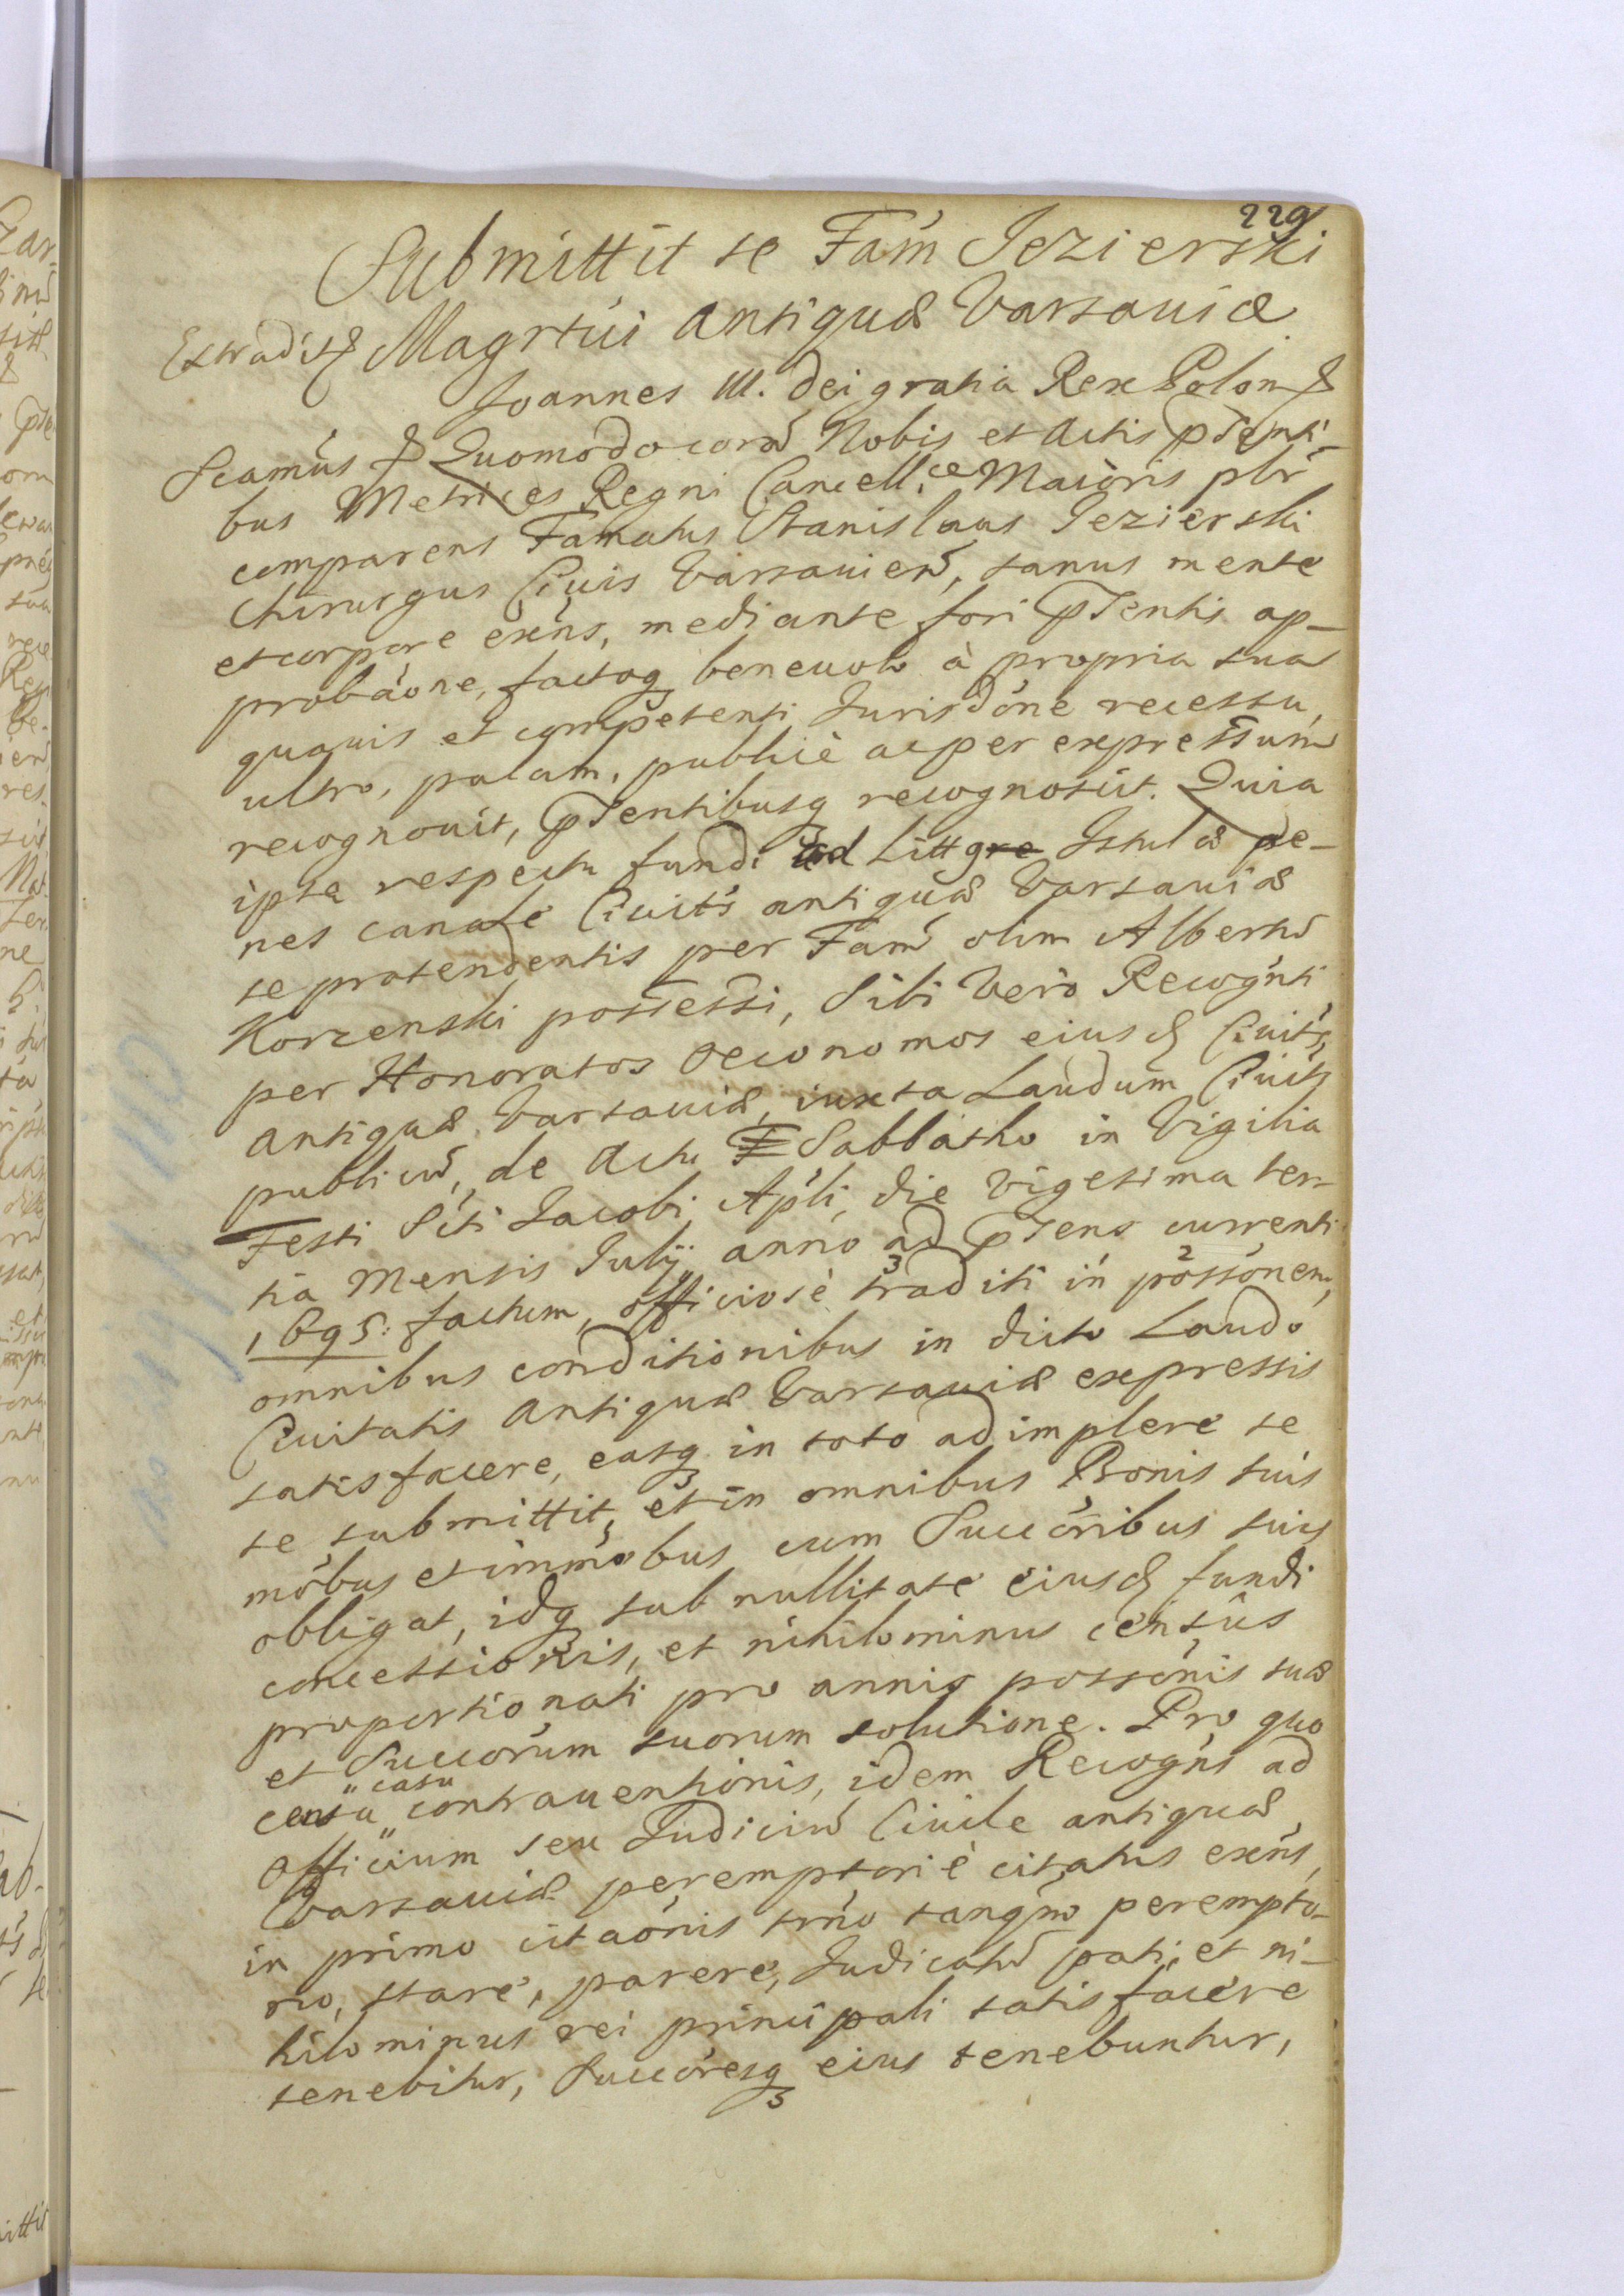 229
Submittit se Fam̃ Jezierski
Extradit Magrtui Antiquæ Varsauiæ
Joannes III. Dei gratia Rex Polon
Scamus Quomodo corã Nobis et Actis pñti-
bus Metrices Regni Cancell.æ Maioris plr
comparens Famatus Stanislaus Jezierski
Chirurgus Ciuis Varsauieñ, sanus mente
et corpore exñs, mediante fori pñtentis ap-
probãone, factoq benevolo à propria sua
quauis et competenti Jurisdõne recessu,
ultro, palam, publicè ac per expressum
recognouit, pñtentibusq recognoscit. Quia
ipse respectu fundi ad Littg Istulæ pe-
nes canale Ciuits antiquæ Varsauiæ
se protendentis per Fam̃ olim Albertũ
Korzenski possessi, Sibi Verò Recogñti
per Honoratos Oeconomos eiusd Ciuits,
Antiquæ Varsauiæ, iuxta Laudum Ciuits
publicũ, de Actu Sabbatho in Vigilia
Festi Sĩti Jacobi Apłi, die Vigesima ter-
tia Mensis Julij anno ad pñtens currenti
1695: factum, officiosè traditi in possõnem,
omnibus conditionibus in dicto Laudo
Ciuitatis Antiquæ Varsauiæ expressis
satisfacere, easq in toto adimplere se
se submittit, et in omnibus Bonis suis
mõbus et immõbus cum Succõribus suis
obligat, idq sub nullitate eiusd fundi
concessionis, et nihilominus censûs
proportionati pro annis possõnis suæ
et Succorum suorum solutione. Pro quo
censu "casu" contrauentionis, idem Recogñs ad
Officium seu Judiciũ Ciuile antiquæ
Varsauiæ peremptoriè citatus exñs,
in primo citaõnis trño tanqm̃ perempto-
rio, stare, parere, Judicatũ pati, et ni-
hilominus rei principali satisfacere
tenebitur, Succõresq eius tenebuntur,